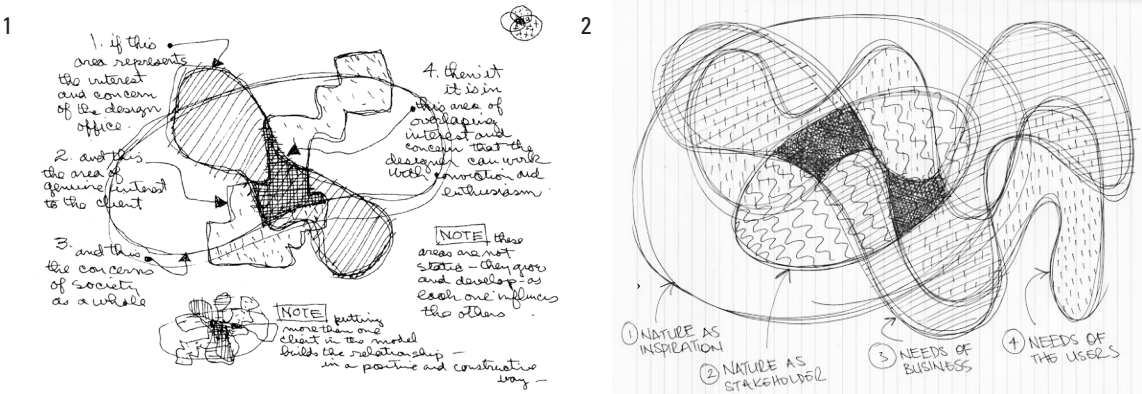 1
1. if this
area represents
the interest
and concern
of the design
office.
2. and this
the area of
genuine interest
to the client
3. and this
the concerns
of society
as a whole
4. then it
it is in
this area of
overlaping
interest and
concern that the
designer can work
with conviction and
enthusiasm
NOTE these
areas are not
static - they grow
and develop - as
each one influences
the others.
NOTE putting
more than one
client in the model
builds the relationship -
in a positive and constructive
way -
2
1 NATURE AS
INSPIRATION
2 NATURE AS
STAKEHOLDER
3 NEEDS OF
BUSINESS
4 NEEDS OF
THE USERS